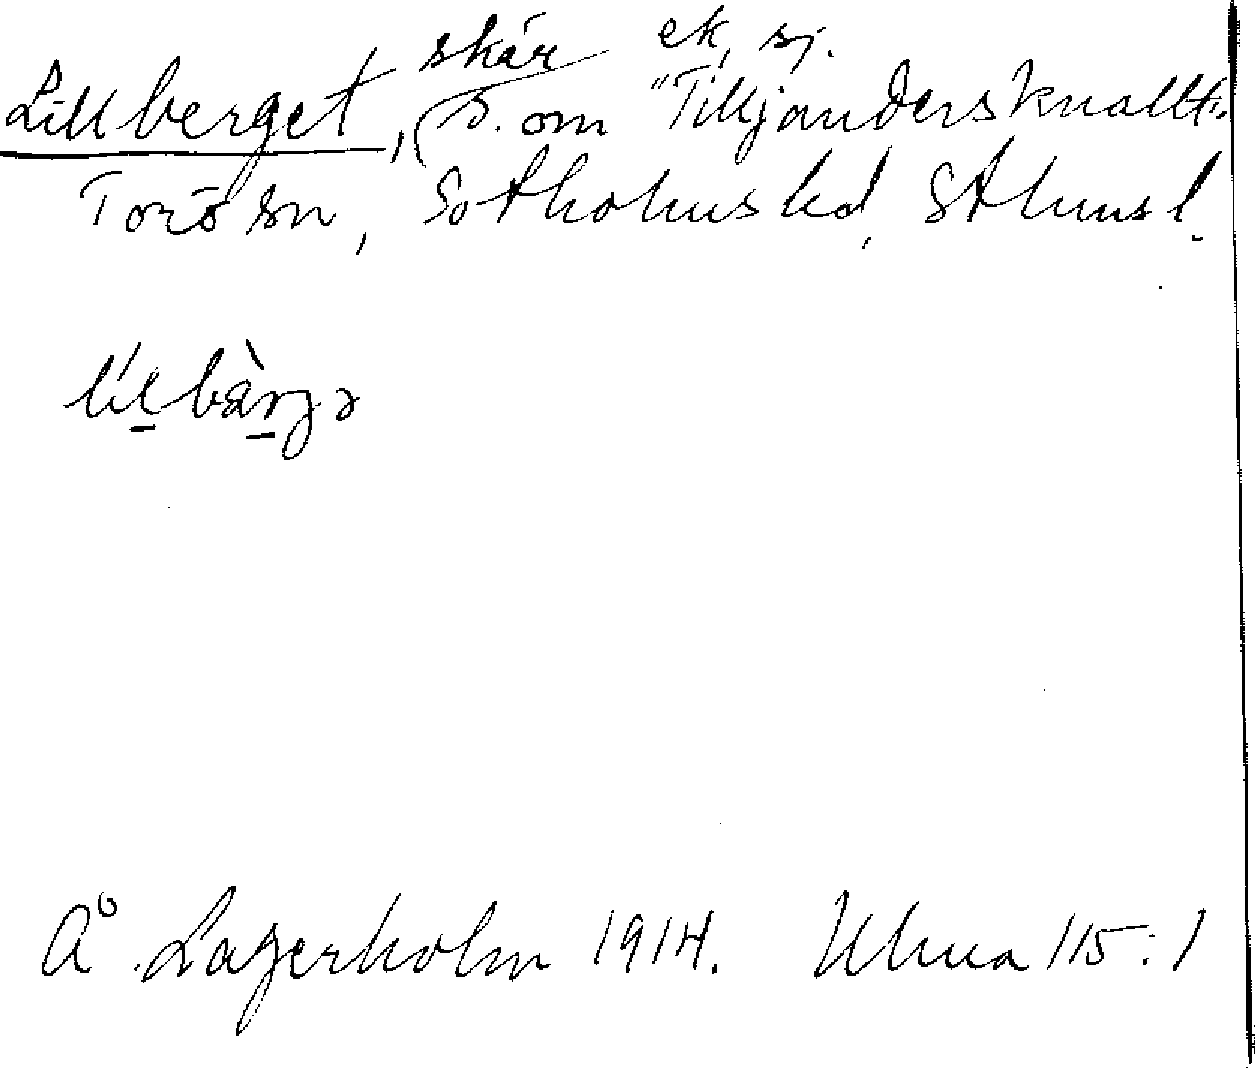 skär ek. sj.
Lillberget, (S. om "Tilljandersknallt.
Torö sn, Sotholms hd, Sthms l.
li̱l bàrjə
A° Lagerholm 1914. Ulma 115:1